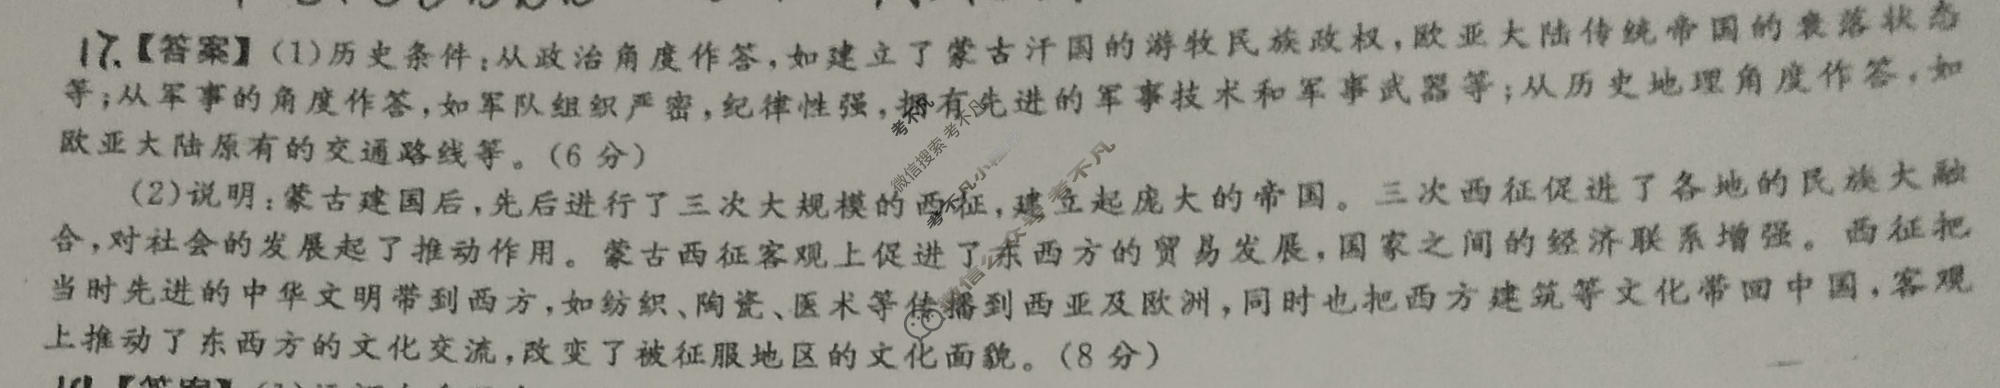 17.【答案】(1)历史条件:从政治角度作答,如建立了蒙古汗国的游牧民族政权,欧亚大陆传统帝国的衰落状态
等;从军事的角度作答,如军队组织严密,纪律性强,拥有先进的军事技术和军事武器等;从历史地理角度作答,如
欧亚大陆原有的交通路线等。(6分)
(2)说明:蒙古建国后,先后进行了三次大规模的西征,建立起庞大的帝国。三次西征促进了各地的民族大融
合,对社会的发展起了推动作用。蒙古西征客观上促进了东西方的贸易发展,国家之间的经济联系增强。西征把
当时先进的中华文明带到西方,如纺织、陶瓷、医术等传播到西亚及欧洲,同时也把西方建筑等文化带回中国,客观
上推动了东西方的文化交流,改变了被征服地区的文化面貌。(8分)